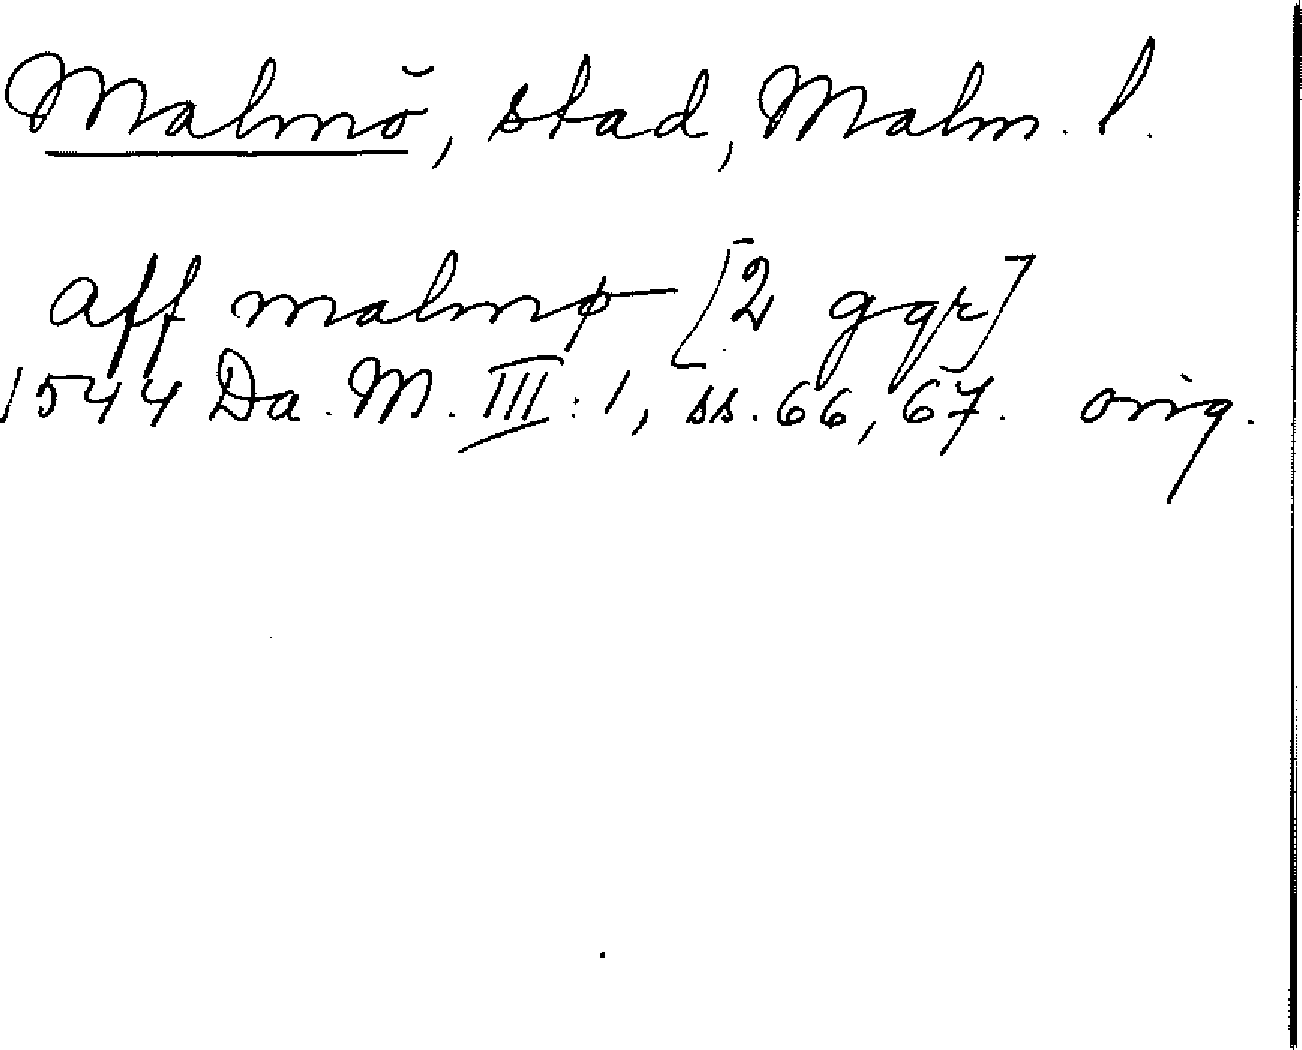 Malmö, stad, Malm. l.
aff malmø [2 ggr]
1544 Da. M. III:1, ss. 66, 67. orig.